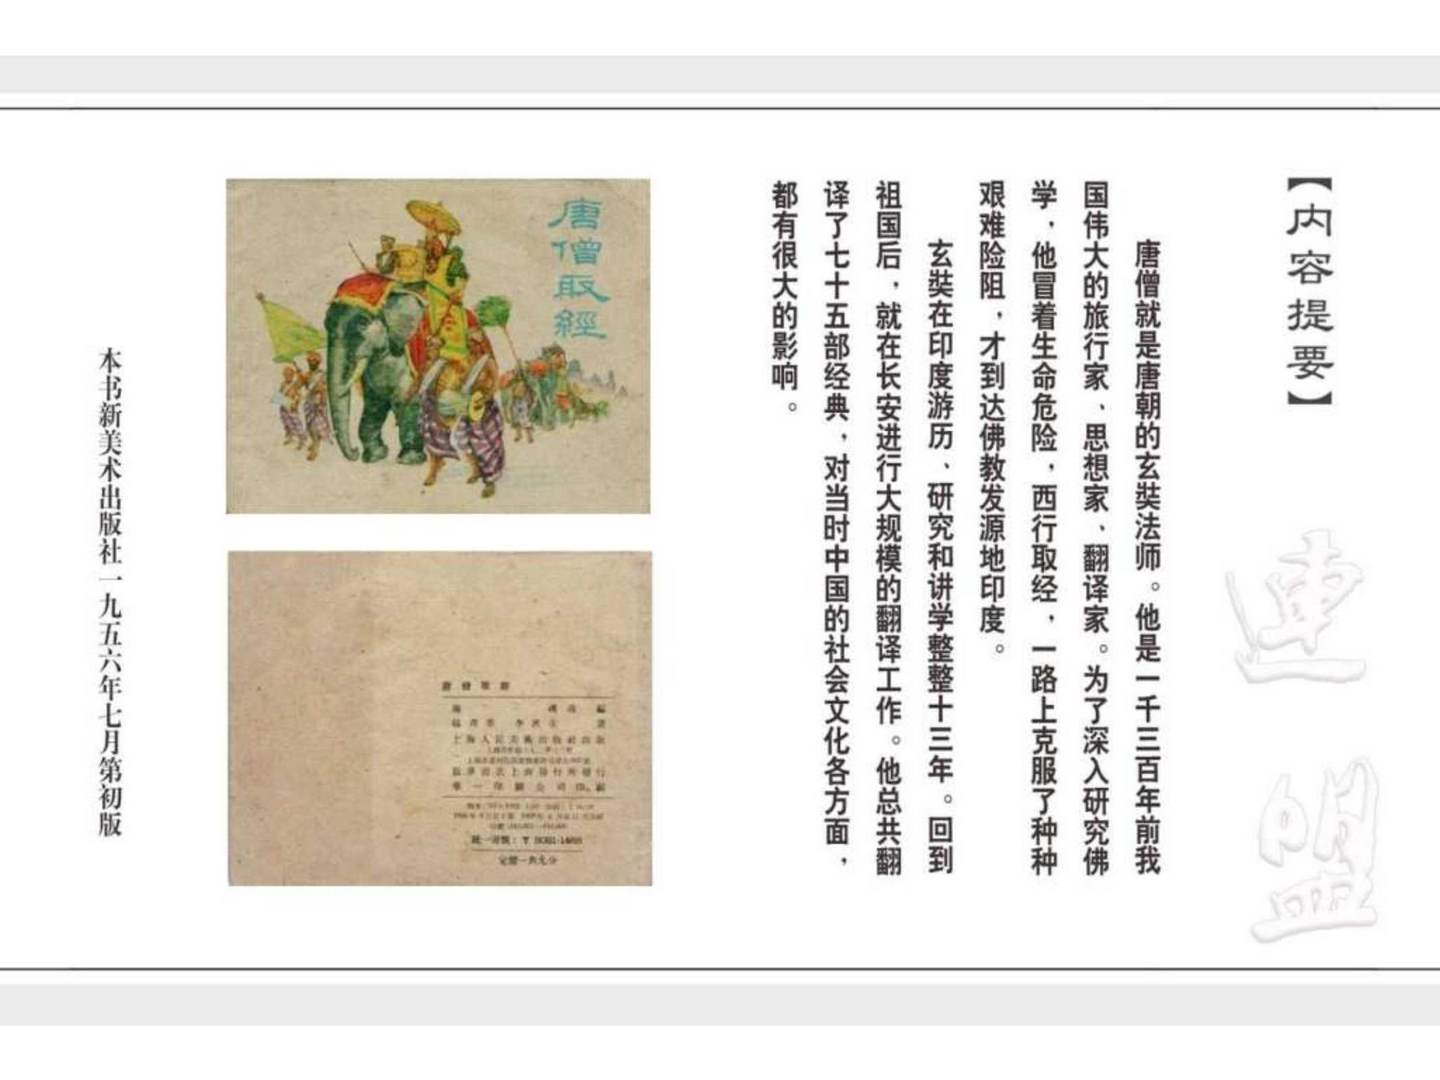 【内容提要】
唐僧就是唐朝的玄奘法师。他是一千三百年前我
国伟大的旅行家、思想家、翻译家。为了深入研究佛
学，他冒着生命危险，西行取经，一路上克服了种种
艰难险阻，才到达佛教发源地印度。
玄奘在印度游历、研究和讲学整整十三年。回到
祖国后，就在长安进行大规模的翻译工作。他总共翻
译了七十五部经典，对当时中国的社会文化各方面，
都有很大的影响。
連盟
唐僧取經
定價一角九分
本书新美术出版社一九五六年七月第初版